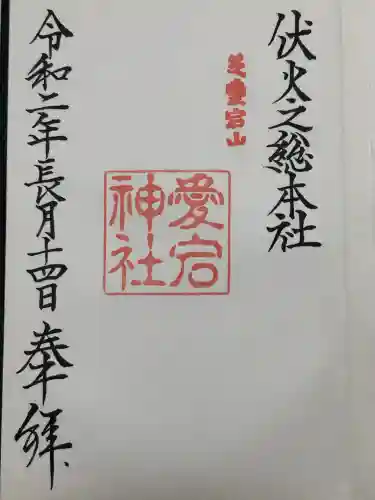 伏火之総本社
芝愛宕山
愛宕
神社
令和二年長月十四日 奉拝